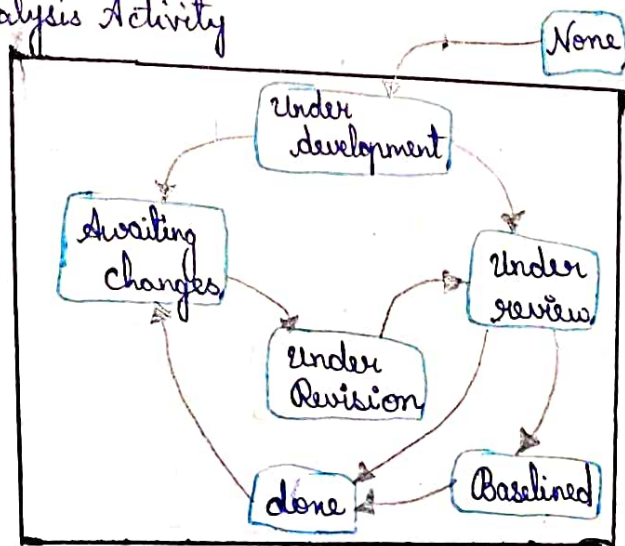 alysis Activity
None
Under
development
Awaiting
Changes
Under
review
Under
Revision
done
Baselined